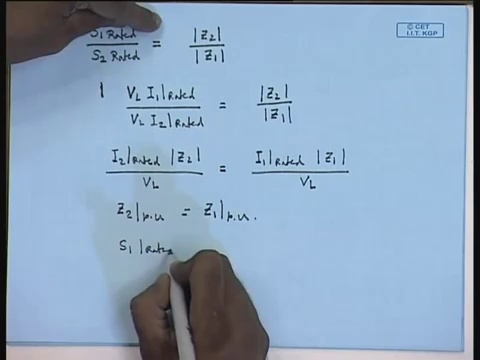 © CET
I.I.T. KGP
S1 Rated / S2 Rated = |Z2| / |Z1|
VL I1|Rated / VL I2|Rated = |Z2| / |Z1|
I2|Rated |Z2| / VL = I1|Rated |Z1| / VL
Z2|p.u = Z1|p.u.
S1|Rated